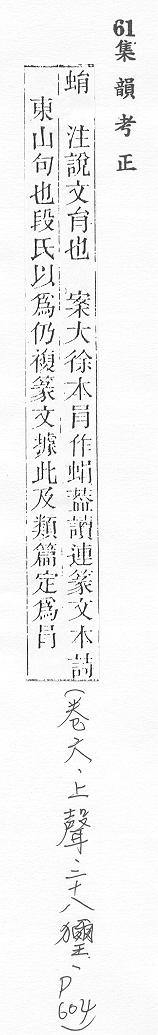 61集韻考正
蜎 注說文肙也 案大徐本肙作蜎葢讀連篆文本詩
東山句也段氏以爲仍複篆文據此及類篇定爲肙
(卷六、上聲、二十八獮、P604)